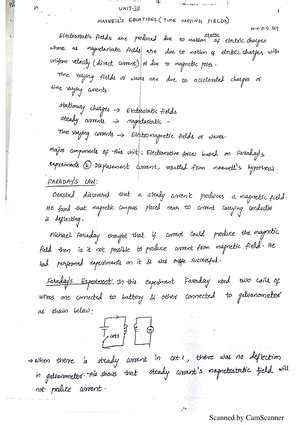 UNIT-III
MAXWELL'S EQUATIONS (TIME VARYING FIELDS)
static
Electrostatic fields are produced due to motion of electric charges
where as magnetostatic fields are due to motion of electric charges with
uniform velocity (direct current) or due to magnetic poles.
Time varying fields or waves are due to accelerated charges or
time varying currents.
stationary charges → Electrostatic fields
steady currents → magnetostatic -
Time varying currents → Electromagnetic fields or waves.
major components of this unit: Electromotive forces based on Faraday's
experiments & Displacement current, resulted from maxwell's hypothesis.
FARADAY'S LAW:
Oersted discovered that a steady current produces a magnetic field.
He found that magnetic compass placed near to current carrying conductor
is deflecting.
Michael Faraday thought that if current could produce the magnetic
field then is it not possible to produce current from magnetic field. He
had performed experiments on it & was successful.
Faraday's Experiment: In this experiment Faraday used two coils of
wires one connected to battery & other connected to galvanometer
as shown below:
→ When there is steady current in ckt 1, there was no deflection
in galvanometer. This shows that steady current's magnetostatic field will
not produce current.
Scanned by CamScanner